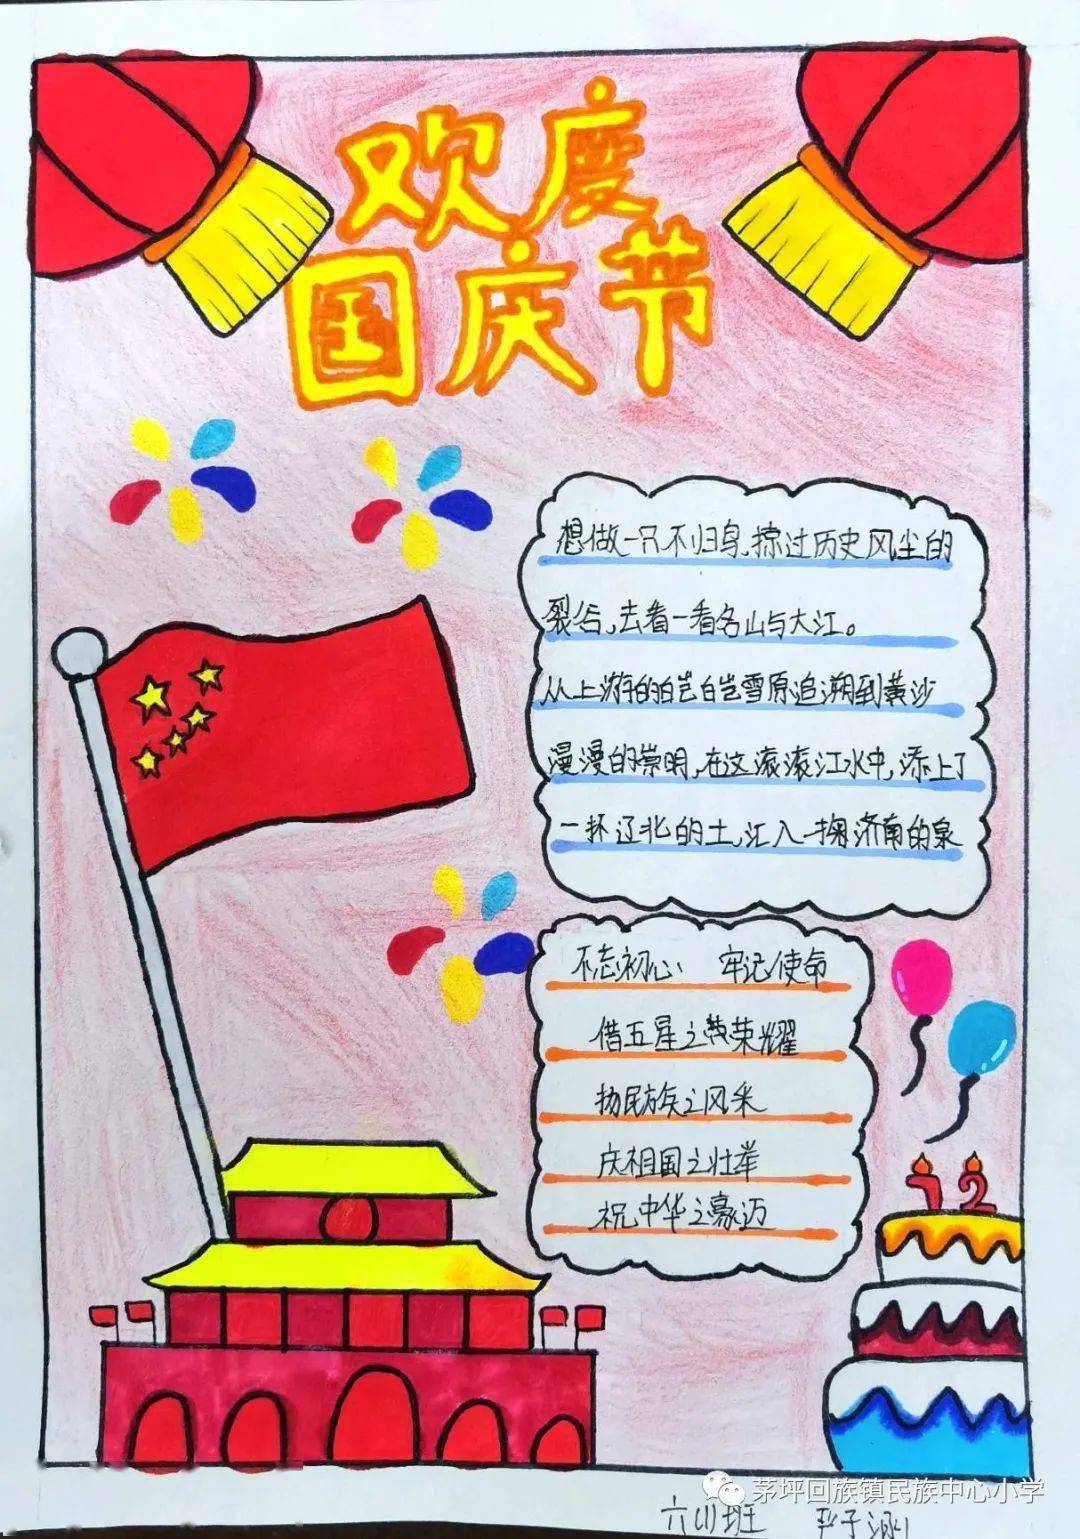 欢度
国庆节
想做一只不归鸟,掠过历史风尘的
裂谷,去看一看名山与大江。
从上游的皑皑雪原追溯到黄沙
漫漫的崇明,在这滚滚江水中,添上了
一抔辽北的土,汇入一掬济南的泉
不忘初心 牢记使命
借五星之荣耀
扬民族之风采
庆祖国之壮举
祝中华之豪迈
12
茅坪回族镇民族中心小学
六(1)班